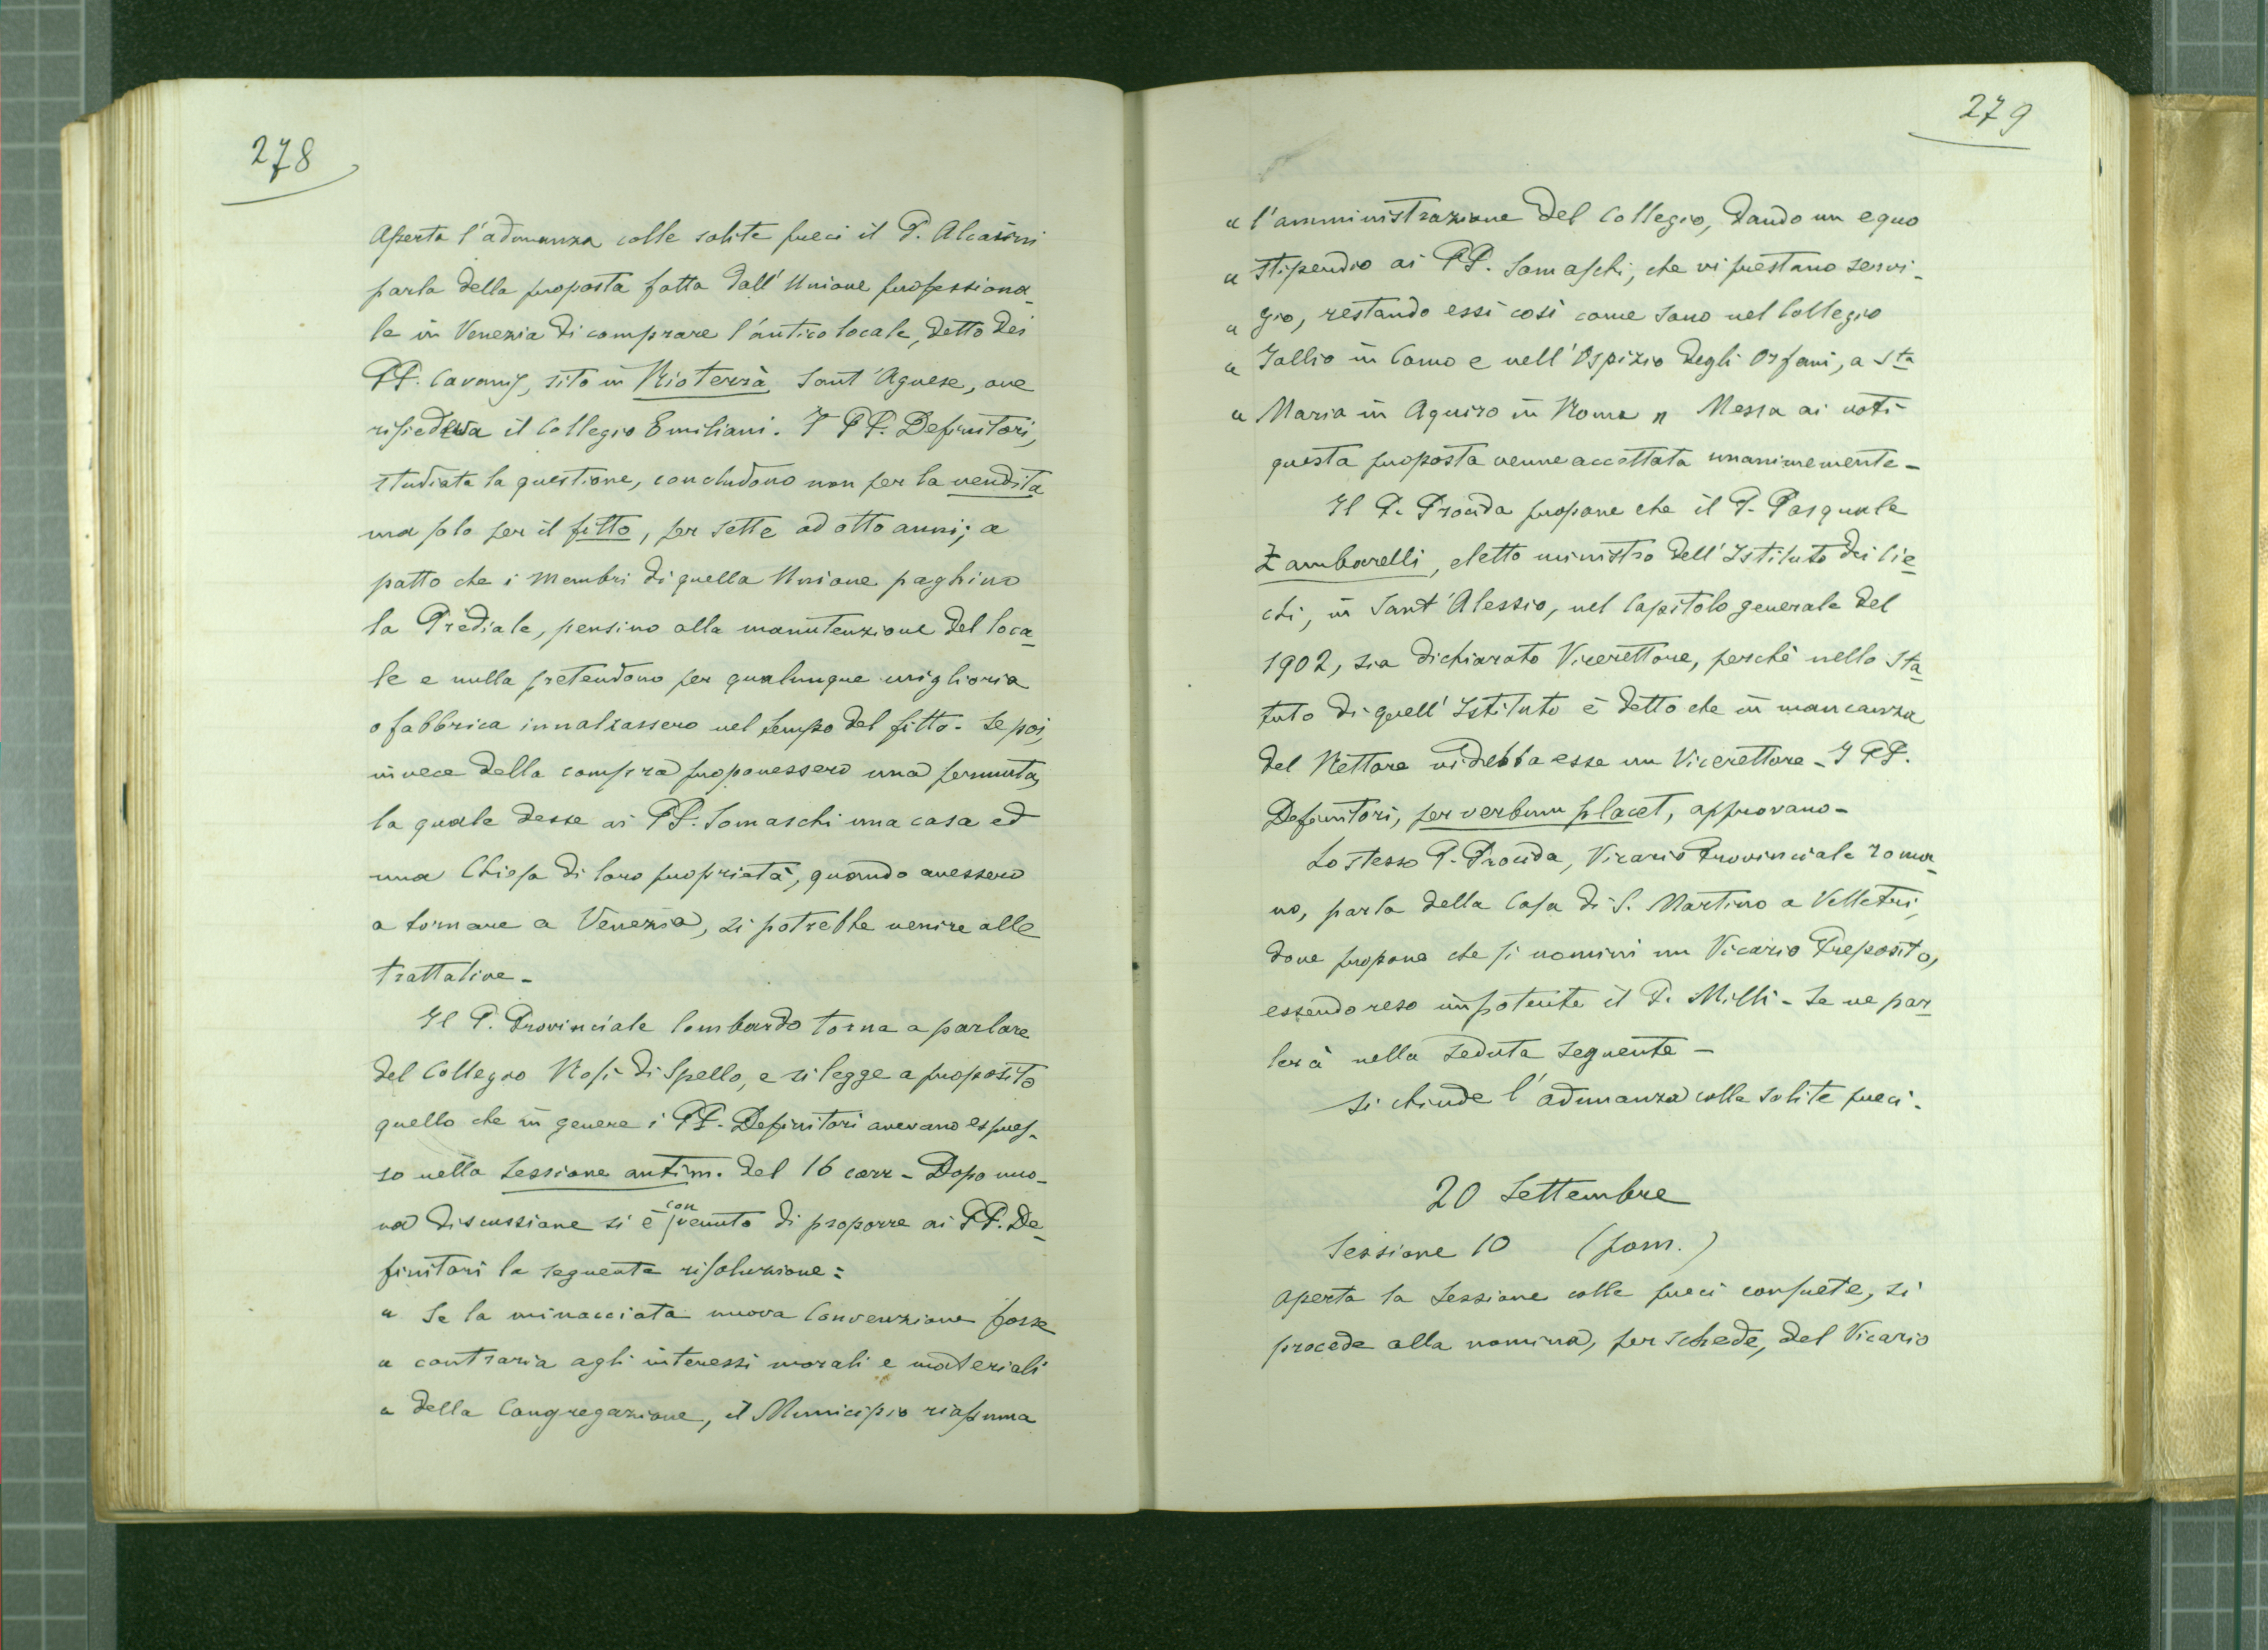 278
Aperta l'adunanza colle solite preci il P. Alcaini
parla della proposta fatta dall'Unione professiona-
le in Venezia di comprare l'antico locale, detto dei
PP. Cavanis, sito in Rioterrà Sant'Agnese, ove
risiedeva il Collegio Emiliani. I PP. Definitori,
studiata la questione, concludono non per la vendita
ma solo per il fitto, per sette od otto anni; a
patto che i membri di quella Unione paghino
la Prediale, pensino alla manutenzione del loca-
le e nulla pretendono per qualunque miglioria
o fabbrica innalzassero nel tempo del fitto. Se poi,
in vece della compra proponessero una permuta,
la quale desse ai PP. Somaschi una casa ed
una Chiesa di loro proprietà, quando avessero
a tornare a Venezia, si potrebbe venire alle
trattative -
Il P. Provinciale lombardo torna a parlare
del Collegio Rosi di Spello, e si legge a proposito
quello che in genere i PP. Definitori avevano espres-
so nella Sessione antim. del 16 corr - Dopo nuo-
va discussione si è convenuto di proporre ai PP. De-
finitori la seguente risoluzione:
« Se la minacciata nuova Convenzione fosse
« contraria agli interessi morali e materiali
« della Congregazione, il Municipio riassuma
279
« l'amministrazione del Collegio, dando un equo
« stipendio ai PP. Somaschi, che vi prestano servi-
« gio, restando essi così come sono nel Collegio
« Gallio in Como e nell'Ospizio degli Orfani, a Sta
« Maria in Aquiro in Roma » Messa ai voti
questa proposta venne accettata unanimemente -
Il P. Procida propone che il P. Pasquale
Zambarelli, eletto ministro dell'Istituto dei cie-
chi, in Sant'Alessio, nel Capitolo generale del
1902, sia dichiarato Vicerettore, perchè nello Sta-
tuto di quell'Istituto è detto che in mancanza
del Rettore vi debba esse un Vicerettore - I PP.
Definitori, per verbum placet, approvano -
Lo stesso P. Procida, Vicario Provinciale roma-
no, parla della Casa di S. Martino a Velletri,
dove propone che si nomini un Vicario Preposito,
essendo reso impotente il P. Milli - Se ne par-
lerà nella seduta seguente -
Si chiude l'adunanza colle solite preci.
20 Settembre
Sessione 10 (pom.)
Aperta la Sessione colle preci consuete, si
procede alla nomina, per schede, del Vicario